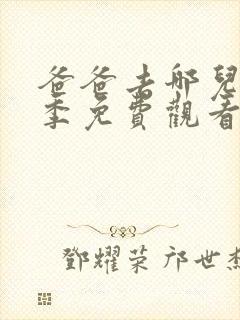 爸爸去哪兒
季免費觀看
鄧耀荣 邝世杰